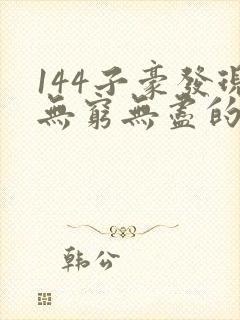 144子豪發現
無窮無盡的
韩公